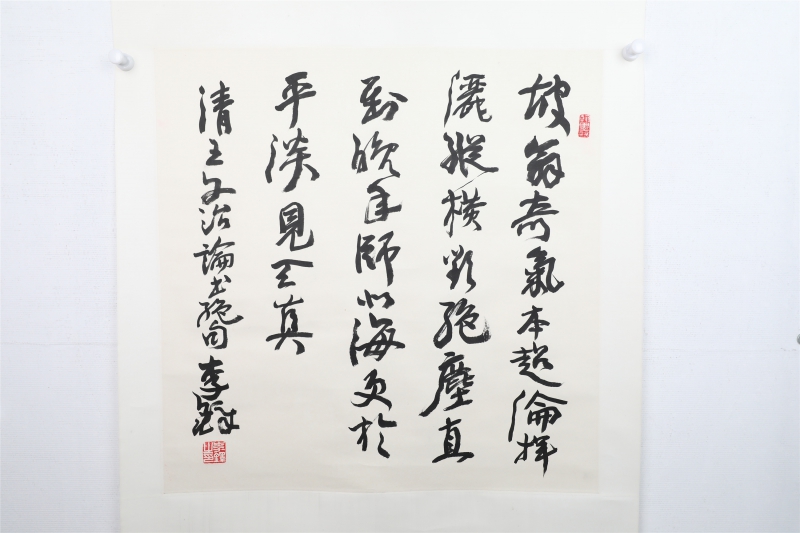 坡翁奇氣本超倫揮
灑縱橫欵絕塵直
到晚年師北海更於
平淡見天真
清王文治論書絕句 李鐸